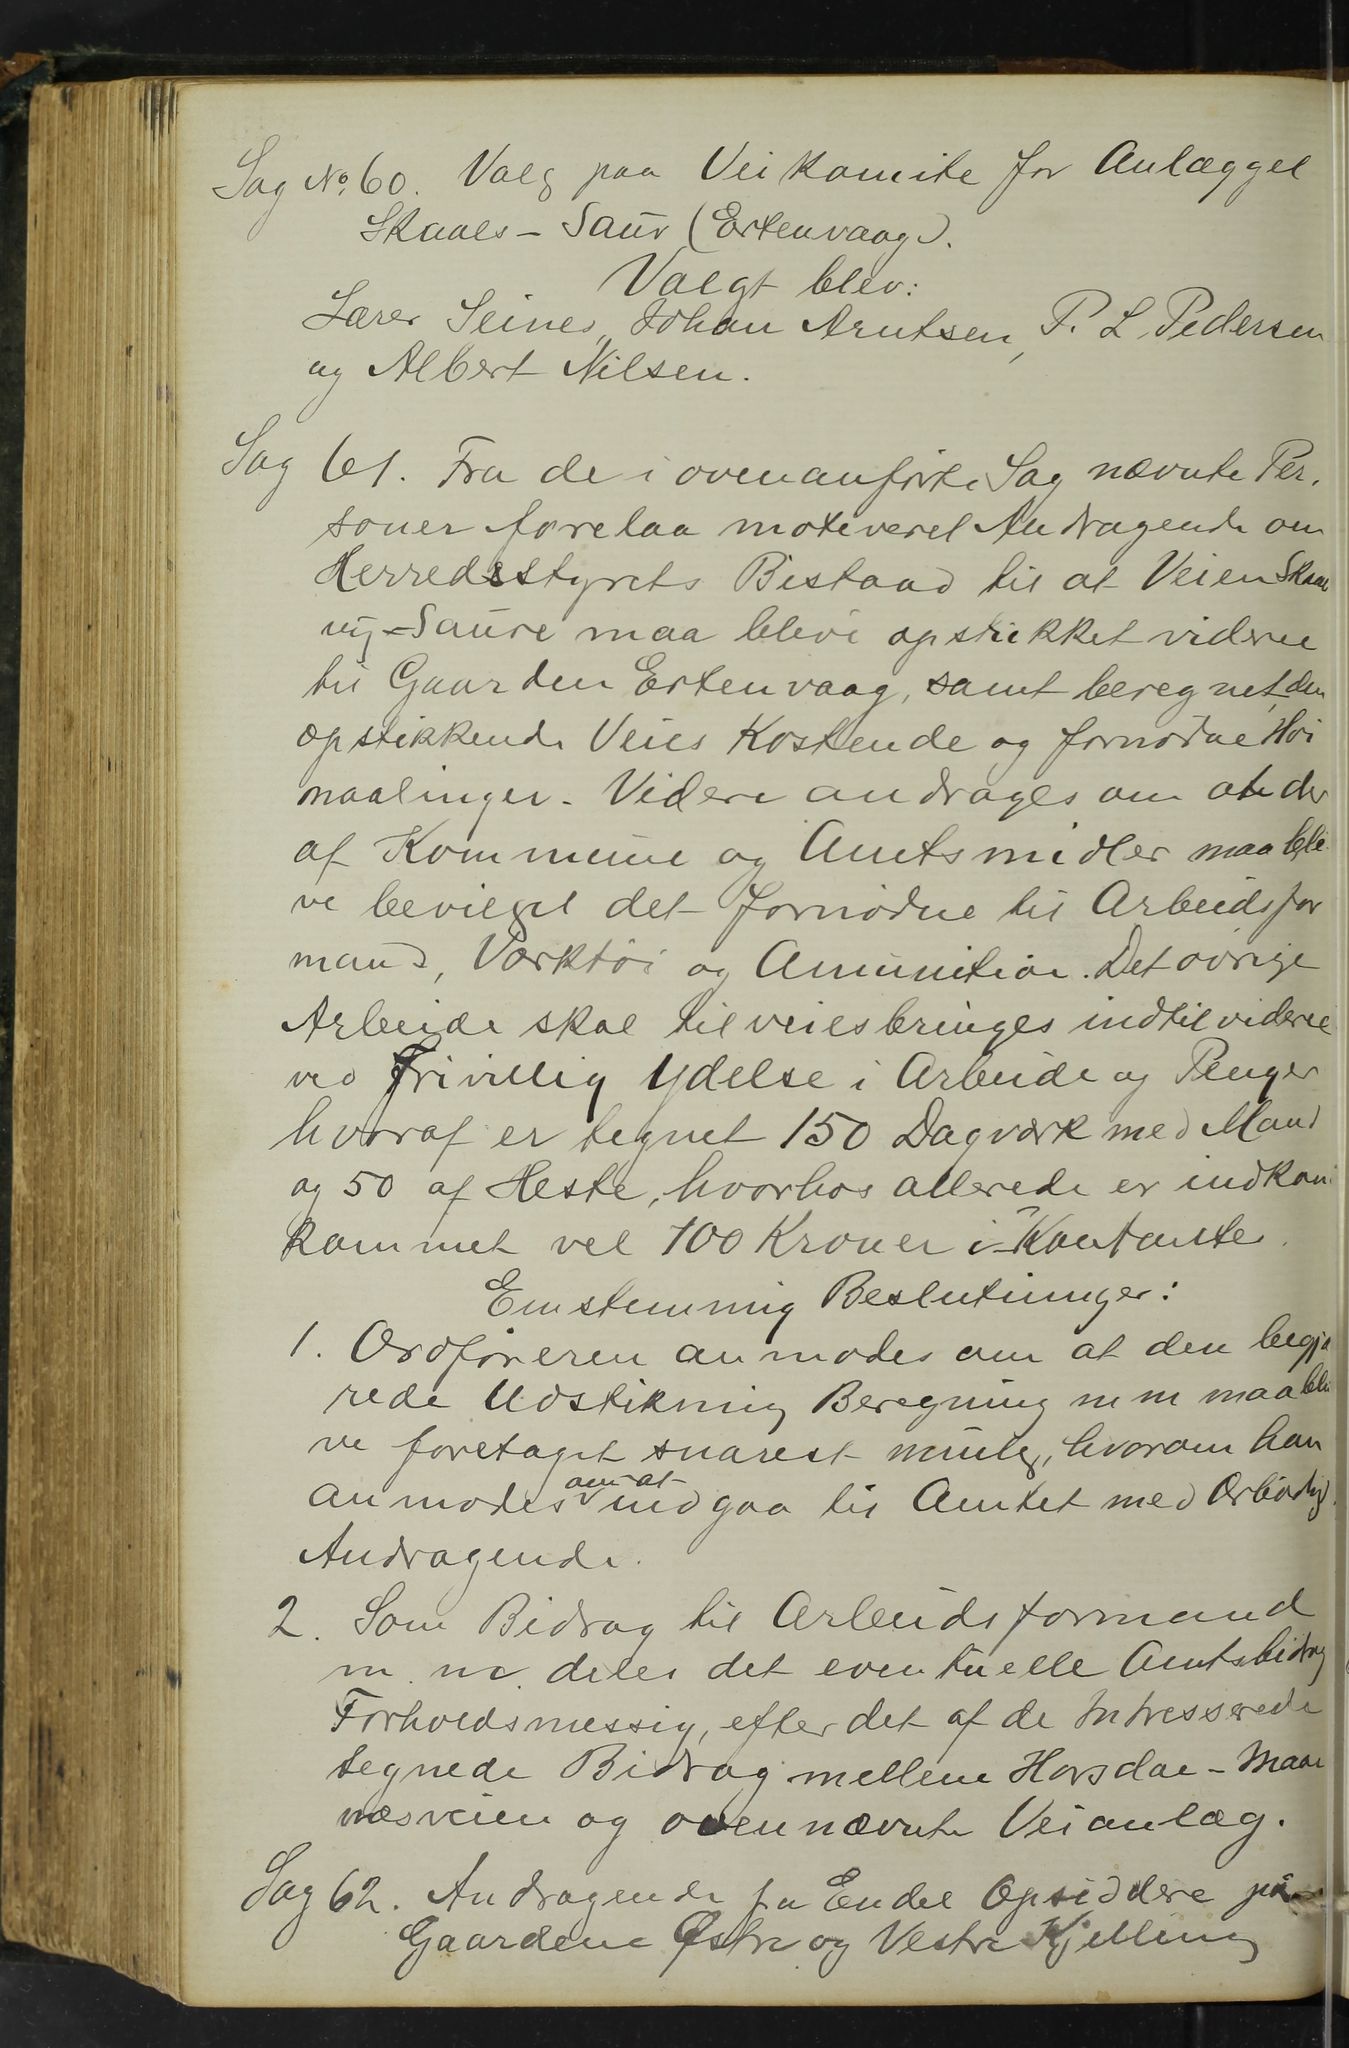 Sag No. 60. Valg paa Vei Komite for Anlægget
Skaales - Saur (Ertenvaag).
Valgt blev:
Lærer Seines, Johan Arntsen, P. L. Pedersen
og Albert Nilsen.
Sag 61. Fra de i ovenanførte Sag nævnte Per-
soner forelaa motiveret Andragende om
Herredsstyrets Bistand til at Veien Skaal
vig - Saure maa blive opstikket videre
til Gaarden Ertenvaag, samt beregnet, den
opstikkende Veies Kostende og fornødne Høi
maalinger. Videre andrages om at der
af Kommune og Amtsmidler maa bli
ve bevilget det fornødne til Arbeidsfor
mand, Værktøi og Amunition. Det øvrige
Arbeide skal tilveiesbringes indtilvidere
ved Frivillig Ydelse i Arbeide og Penger
hvoraf er tegnet 150 Dagværk med Mand
og 50 af Heste, hvorhos allerede er indkom
kommet vel 100 Kroner i Kontanter.
Enstemmig Beslutninger:
1. Ordføreren anmodes om at den begjæ
rede Udstikning Beregning m m maa bli
ve foretaget snarest mulig, hvorom han
anmodes om at indgaa til Amtet med Ærbødig
Andragende.
2. Som Bidrag til Arbeidsformand
m. m. deles det eventuelle Amtsbidrag
Forholdsmessig, efter det af de Intresserede
tegnede Bidrag mellem Horsdal - Maar
næsveien og ovennævnte Veianlæg.
Sag 62. Andragende fra Endel Opsiddere på
Gaardene Østre og Vestre Kjelling